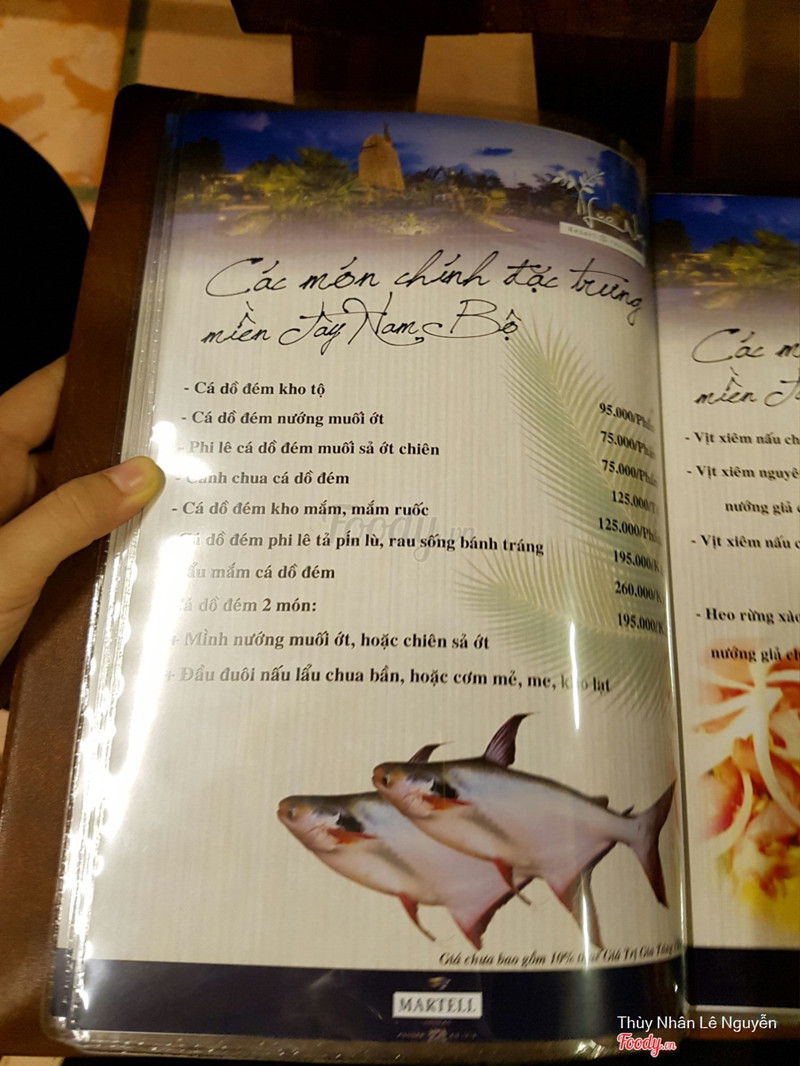 Các món chính đặc trưng
miền Tây Nam Bộ
- Cá dồ đém kho tộ
95.000/Phần
- Cá dồ đém nướng muối ớt
75.000/Phần
- Phi lê cá dồ đém muối sả ớt chiên
75.000/Phần
- Canh chua cá dồ đém
125.000/
- Cá dồ đém kho mắm, mắm ruốc
125.000/Phần
Cá dồ đém phi lê tả pín lù, rau sống bánh tráng
195.000/K
Lẩu mắm cá dồ đém
260.000/K
Cá dồ đém 2 món:
195.000/K
+ Mình nướng muối ớt, hoặc chiên sả ớt
+ Đầu đuôi nấu lẩu chua bần, hoặc cơm mẻ, me, kho lạt
Giá chưa bao gồm 10% thuế Giá Trị Gia Tăng
MARTELL
Các m
miền
- Vịt xiêm nấu ch
- Vịt xiêm nguyê
nướng giả c
- Vịt xiêm nấu c
- Heo rừng xào
nướng giả ch
Foody.vn
Thùy Nhân Lê Nguyễn
Foody.vn